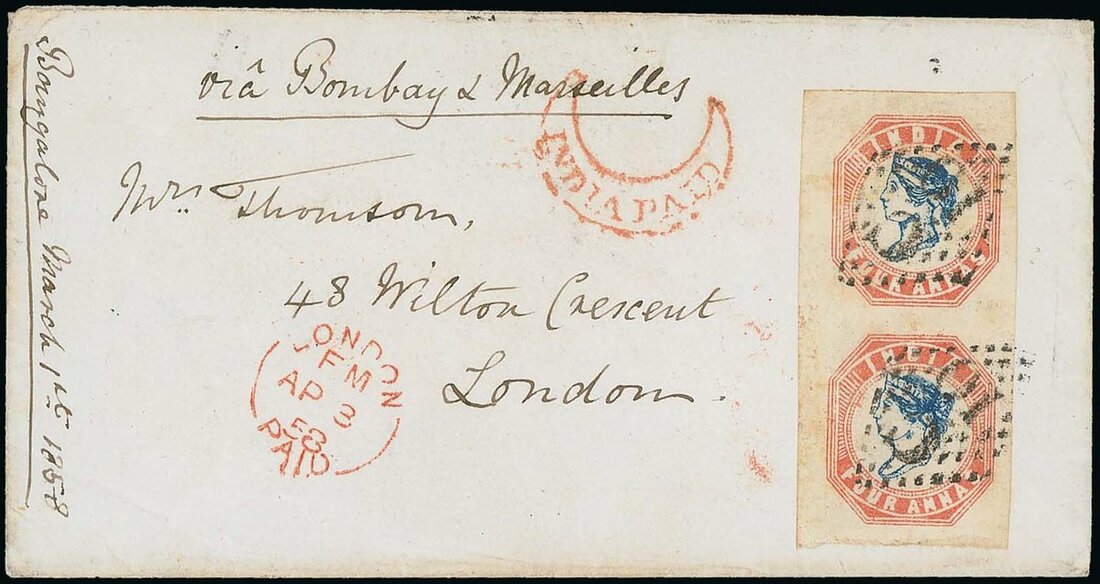 viâ Bombay & Marseilles
INDIA PAID
Mrs Thomson,
48 Wilton Crescent
London.
Bangalore March 1st 1858
LONDON
FM
AP 3
58
PAID
INDIA
FOUR ANNAS
INDIA
FOUR ANNAS